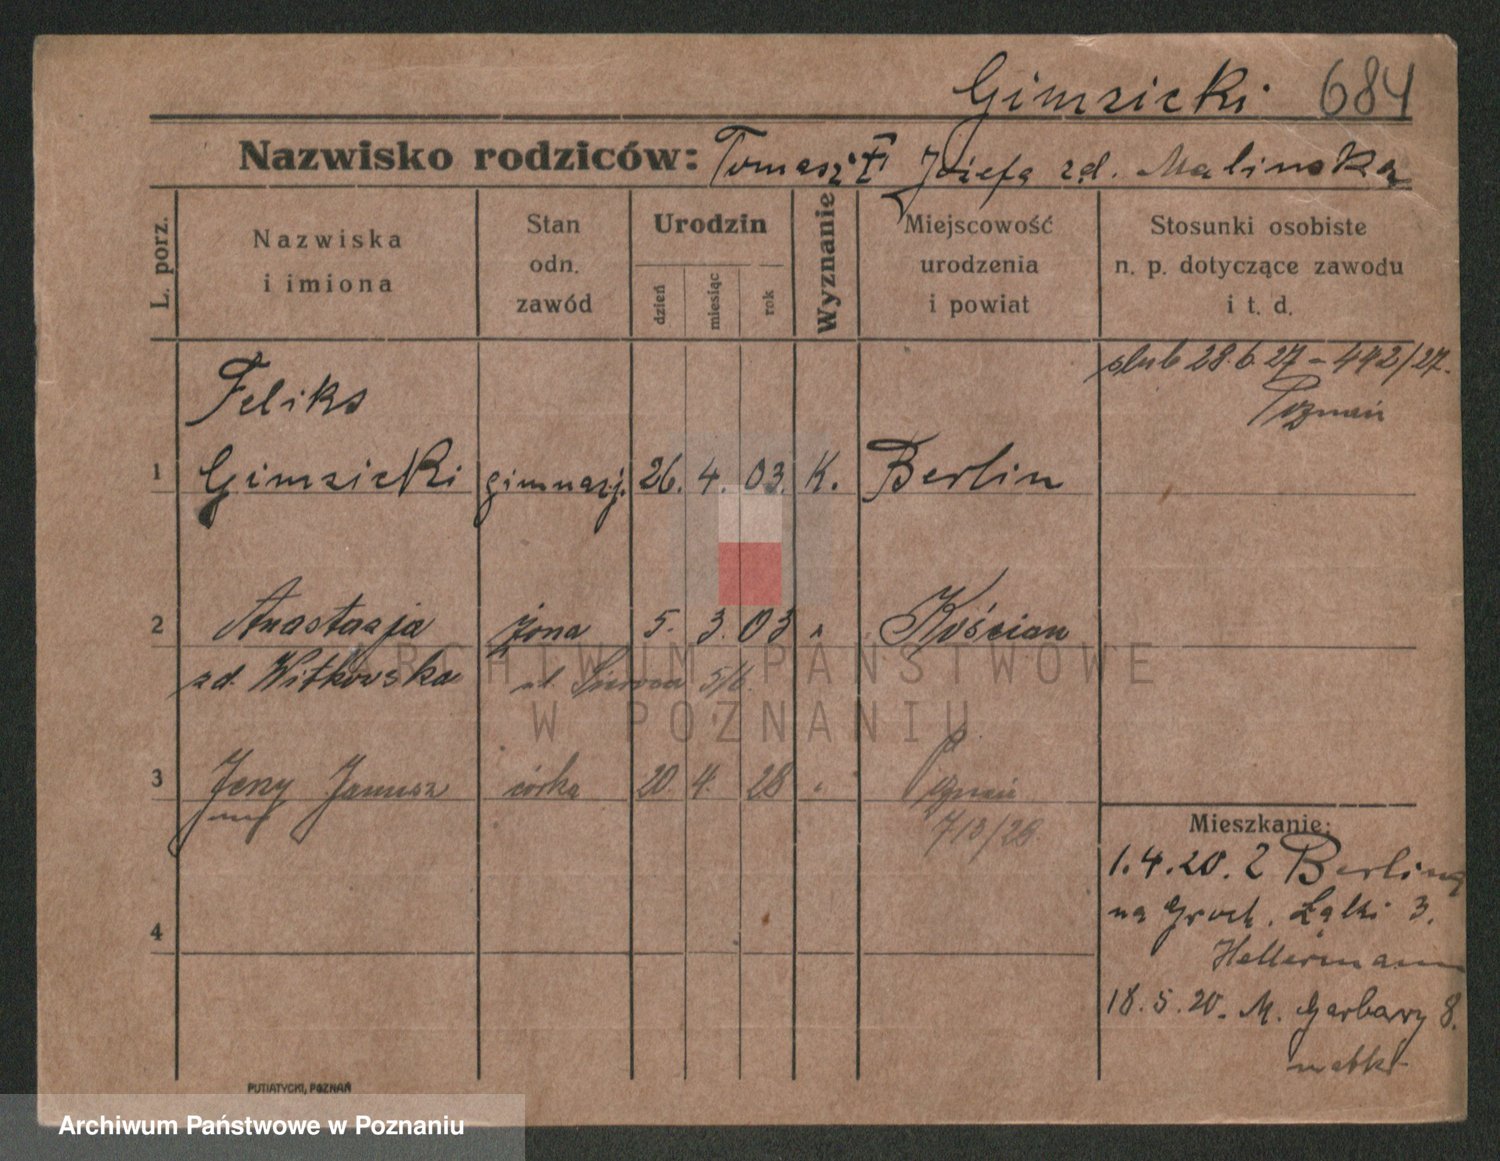 Gimzicki 684
Nazwisko rodziców: Tomasz i Józefa zd. Malinska
L. porz.
Nazwiska
i imiona
Stan
odn.
zawód
Urodzin
dzień
miesiąc
rok
Wyznanie
Miejscowość
urodzenia
i powiat
Stosunki osobiste
n. p. dotyczące zawodu
i t. d.
ślub 28.6.27 - 442/27.
Poznań
Feliks
1 Gimzicki gimnazj. 26. 4. 03. K. Berlin
2 Anastazja żona 5. 3. 03 " Kościan
zd. Witkowska ul. 5/6.
3 Jerzy Janusz córka 20. 4. 28 " Poznań
713/28
4
Mieszkanie:
1.4.20. Z Berlina
na Groch. Łąki 3.
Hellermann
18.5.20. M. Garbary 8.
PUTIATYCKI, POZNAŃ
ARCHIWUM PAŃSTWOWE
W POZNANIU
Archiwum Państwowe w Poznaniu